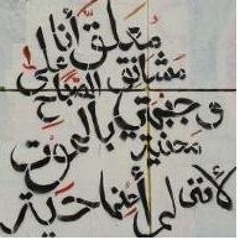 معلق أنا
على مشانق الصباح
و جبهتي بالموت
محنية
لأنني لم أحنها حية